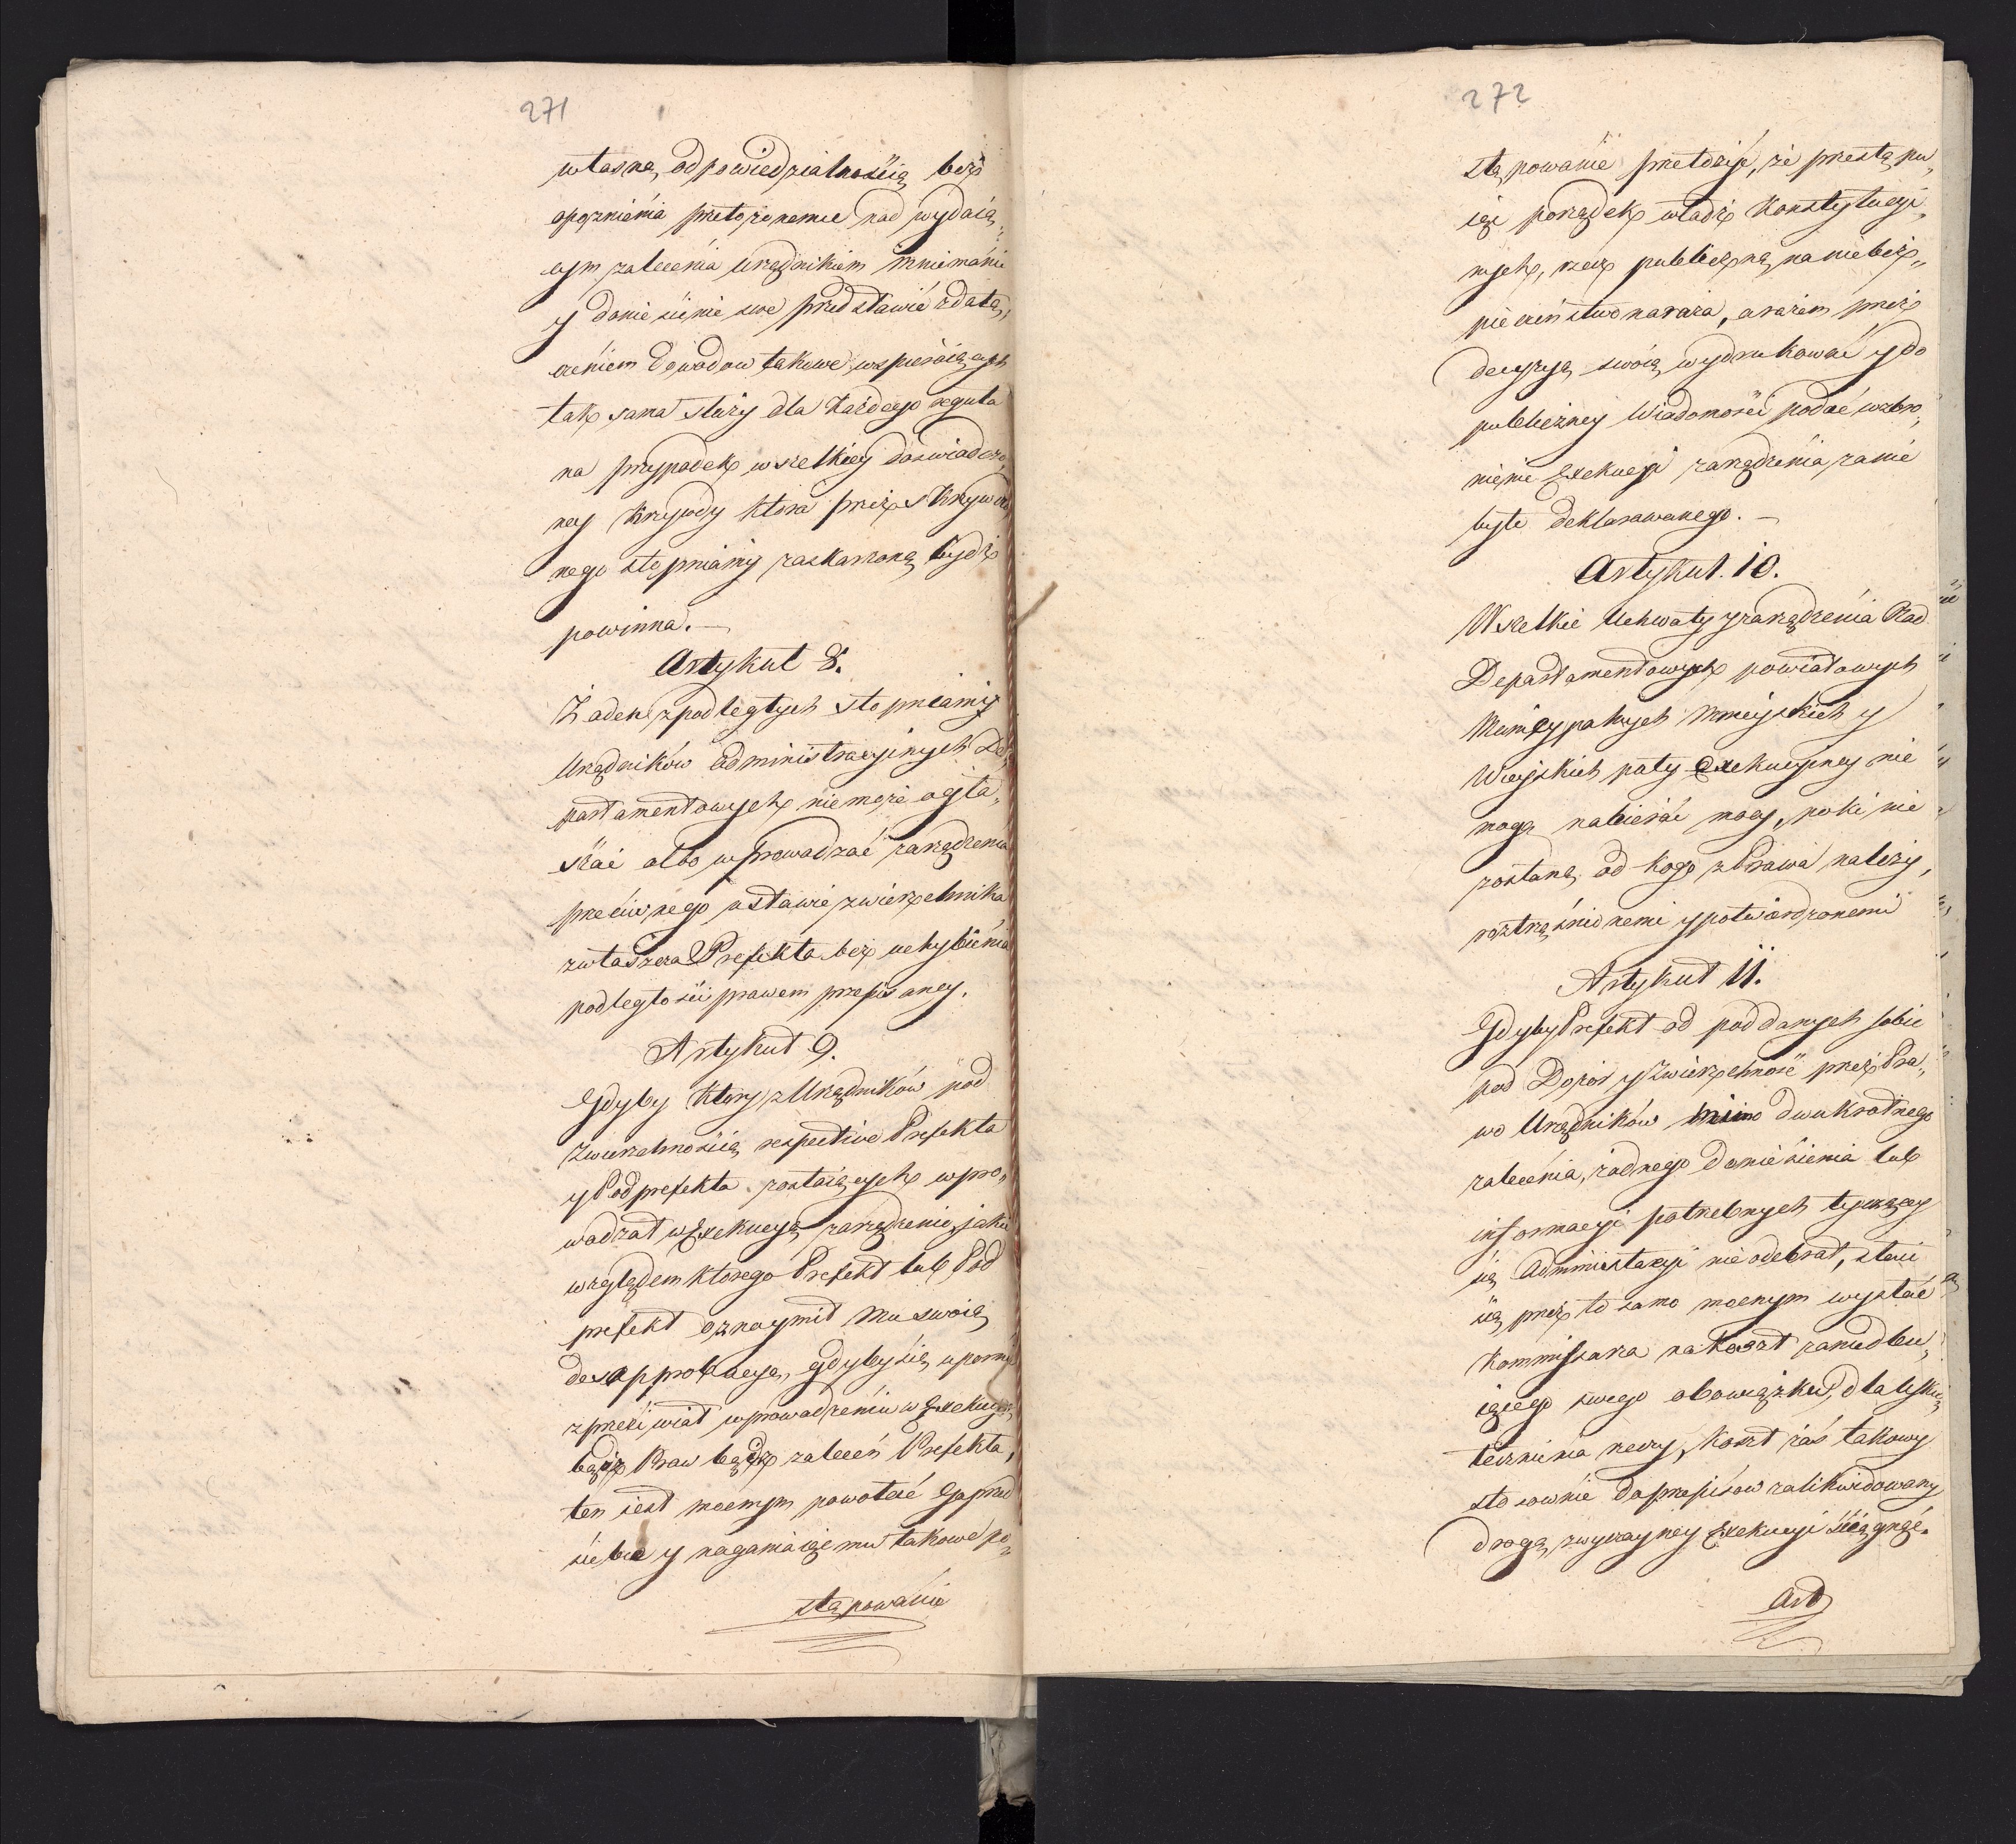 271
własną odpowiedzialnością bez
opoznienia przełożonemu nad wydaią„
cym zalecenia Urzędnikiem mniemanie
y doniesienie swe przedstawić zdołą„
czeniem dowodow takowe wspieraiących
tak sama służy dla każdego reguła
na przypadek wszelkiey doświadczo„
ney krzywdy ktora przez skrzywdzo„
nego stopniamy zaskarzoną bydź
powinna. —
Artykuł 8.
Żaden z podległych stopniamy
Urzędników administracyinych De„
partamentowych nie może ogła„
szać albo wprowadzać zarządzenia
przeciwnego ustawie zwierzchnika
zwłaszcza Prefekta bez uchybienia
podległości prawem przepisaney.
Artykuł 9.
Gdyby ktory z Urzędników pod
Zwierzchnością respective Prefekta
y Podprefekta zostaiących wpro„
wadzał w Exekucyą zarządzenie jakie
względem ktorego Prefekt lub Pod
prefekt oznaymił mu swoią
desapprobacyą, gdyby się uporny
zprzeciwiał wprowadzeniu w Exekucyą
bądź Praw bądź zaleceń Prefekta,
ten iest mocnym powołać go przed
siebie y naganiaiąc mu takowe po„
stąpowanie
272
stąpowanie przełoży, że przestąpu„
iąc porządek władz konstytucyi„
nych, rzecz publiczną na niebez„
pieczeństwo naraża, a razem przez
decyzyą swoią wydrukować y do
publiczney wiadomości podać wzbro„
nienie Exekucyi zarządzenia za nie
byłe deklarowanego. —
Artykuł. 10.
Wszelkie Uchwały y zarządzenia Rad
Departamentowych powiatowych
Municypalnych Mieyskich y
Wieyskich poty Exekucyiney nie
mogą nabierać mocy, poki nie
zostaną od kogo z Prawa należy,
roztrząśnionemi y potwierdzonemi
Artykuł 11.
Gdyby Prefekt od poddanych sobie
pod Dozor y Zwierzchność przez Pra„
wo Urzędników mimo dwukrotnego
zalecenia, żadnego doniesienia lub
informacyi potrzebnych tyczącey
się Administracyi nie odebrał, staie
się przez to samo mocnym wysłać
Kommissarza na koszt zaniedbu„
iącego swego obowiązku, dla usku„
tecznienia rzeczy, koszt zaś takowy
stosownie do przepisow zalikwidowany
drogą zwyczayney Exekucyi ściągnąć.
Art